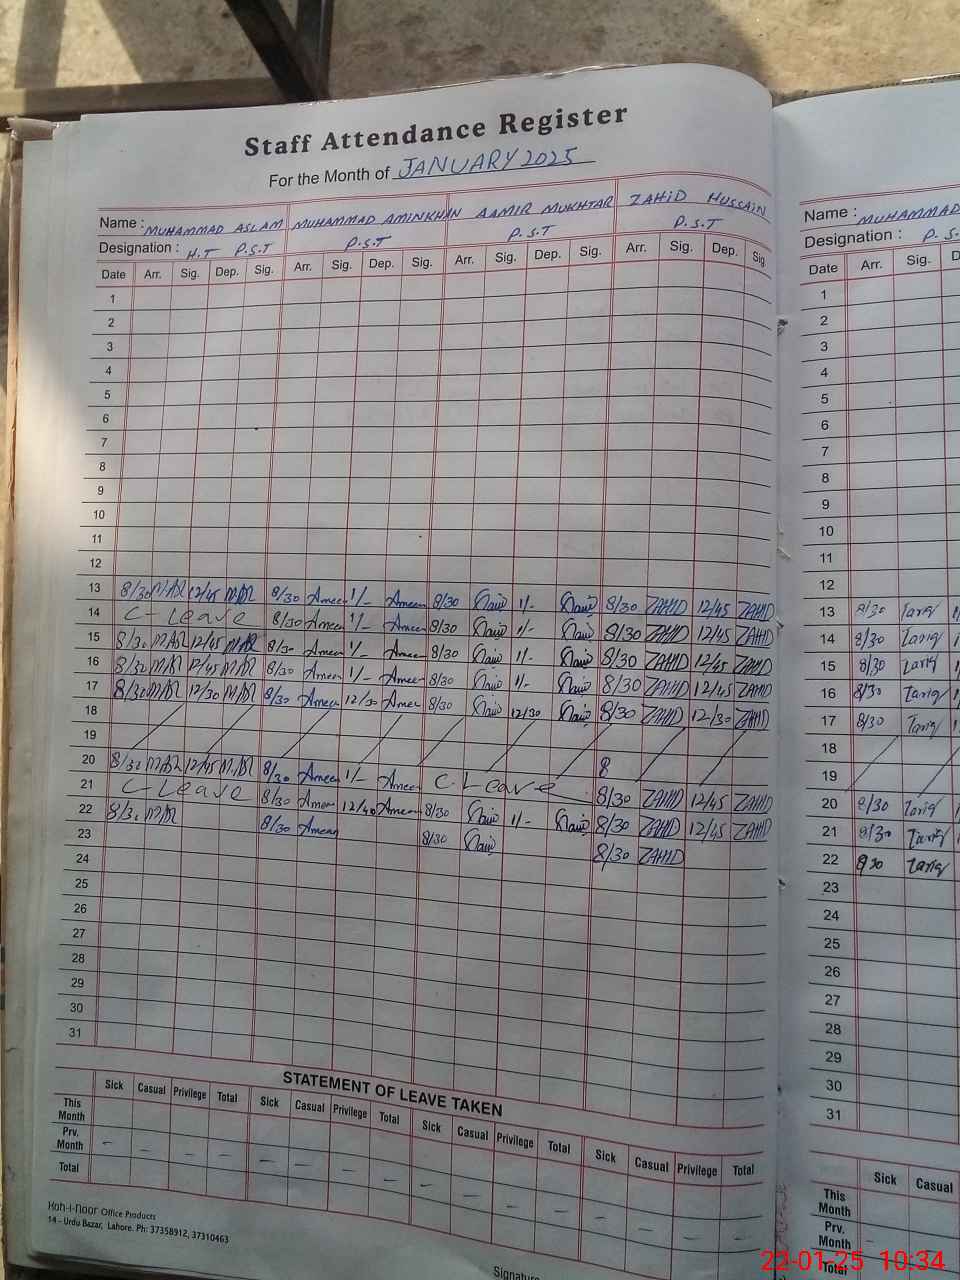 Staff Attendance Register
For the Month of JANUARY 2025
Name : MUHAMMAD ASLAM MUHAMMAD AMIN KHAN AAMIR MUKHTAR ZAHID HUSSAIN
Designation : H.T P.S.T P.S.T P.S.T P.S.T
Date Arr. Sig. Dep. Sig. Arr. Sig. Dep. Sig. Arr. Sig. Dep. Sig. Arr. Sig. Dep. Sig.
1
2
3
4
5
6
7
8
9
10
11
12
13 8/30 12/45 8/30 Ameen 1/- Ameen 8/30 1/- 8/30 ZAHID 12/45 ZAHID
14 C-Leave 8/30 Ameen 1/- Ameen 8/30 1/- 8/30 ZAHID 12/45 ZAHID
15 8/30 12/45 8/30 Ameen 1/- Ameen 8/30 1/- 8/30 ZAHID 12/45 ZAHID
16 8/30 12/45 8/30 Ameen 1/- Ameen 8/30 1/- 8/30 ZAHID 12/45 ZAHID
17 8/30 12/30 8/30 Ameen 12/30 Ameen 8/30 12/30 8/30 ZAHID 12/30 ZAHID
18
19
20 8/30 12/45 8/30 Ameen 1/- Ameen C Leave 8/30 ZAHID 12/45 ZAHID
21 C-Leave 8/30 Ameen 12/40 Ameen 8/30 1/- 8/30 ZAHID 12/45 ZAHID
22 8/30 8/30 Ameen 8/30 8/30 ZAHID
23
24
25
26
27
28
29
30
31
STATEMENT OF LEAVE TAKEN
Sick Casual Privilege Total Sick Casual Privilege Total Sick Casual Privilege Total Sick Casual Privilege Total
This Month
Prv. Month - - - - - - - - - - - - - - - -
Total
Koh-i-noor Office Products
14 - Urdu Bazar, Lahore. Ph: 37358912, 37310463
Signature
Name : MUHAMMAD
Designation : P.S.
Date Arr. Sig.
1
2
3
4
5
6
7
8
9
10
11
12
13 8/30 Tariq
14 8/30 Tariq
15 8/30 Tariq
16 8/30 Tariq
17 8/30 Tariq
18
19
20 8/30 Tariq
21 8/30 Tariq
22 8/30 Tariq
23
24
25
26
27
28
29
30
31
Sick Casual
This Month
Prv. Month -
Total
22-01-25 10:34